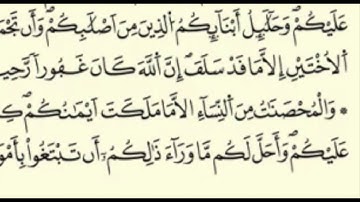 عَلَيْكُمْ وَحَلَٰٓئِلُ أَبْنَآئِكُمُ الَّذِينَ مِنْ أَصْلَٰبِكُمْ وَأَن تَجْمَ
الْأُخْتَيْنِ إِلَّا مَا قَدْ سَلَفَ إِنَّ اللَّهَ كَانَ غَفُورًا رَّحِي
* وَالْمُحْصَنَٰتُ مِنَ النِّسَآءِ إِلَّا مَا مَلَكَتْ أَيْمَٰنُكُمْ كِ
عَلَيْكُمْ وَأَحَلَّ لَكُم مَّا وَرَآءَ ذَٰلِكُمْ أَن تَبْتَغُوا بِأَمْوَ